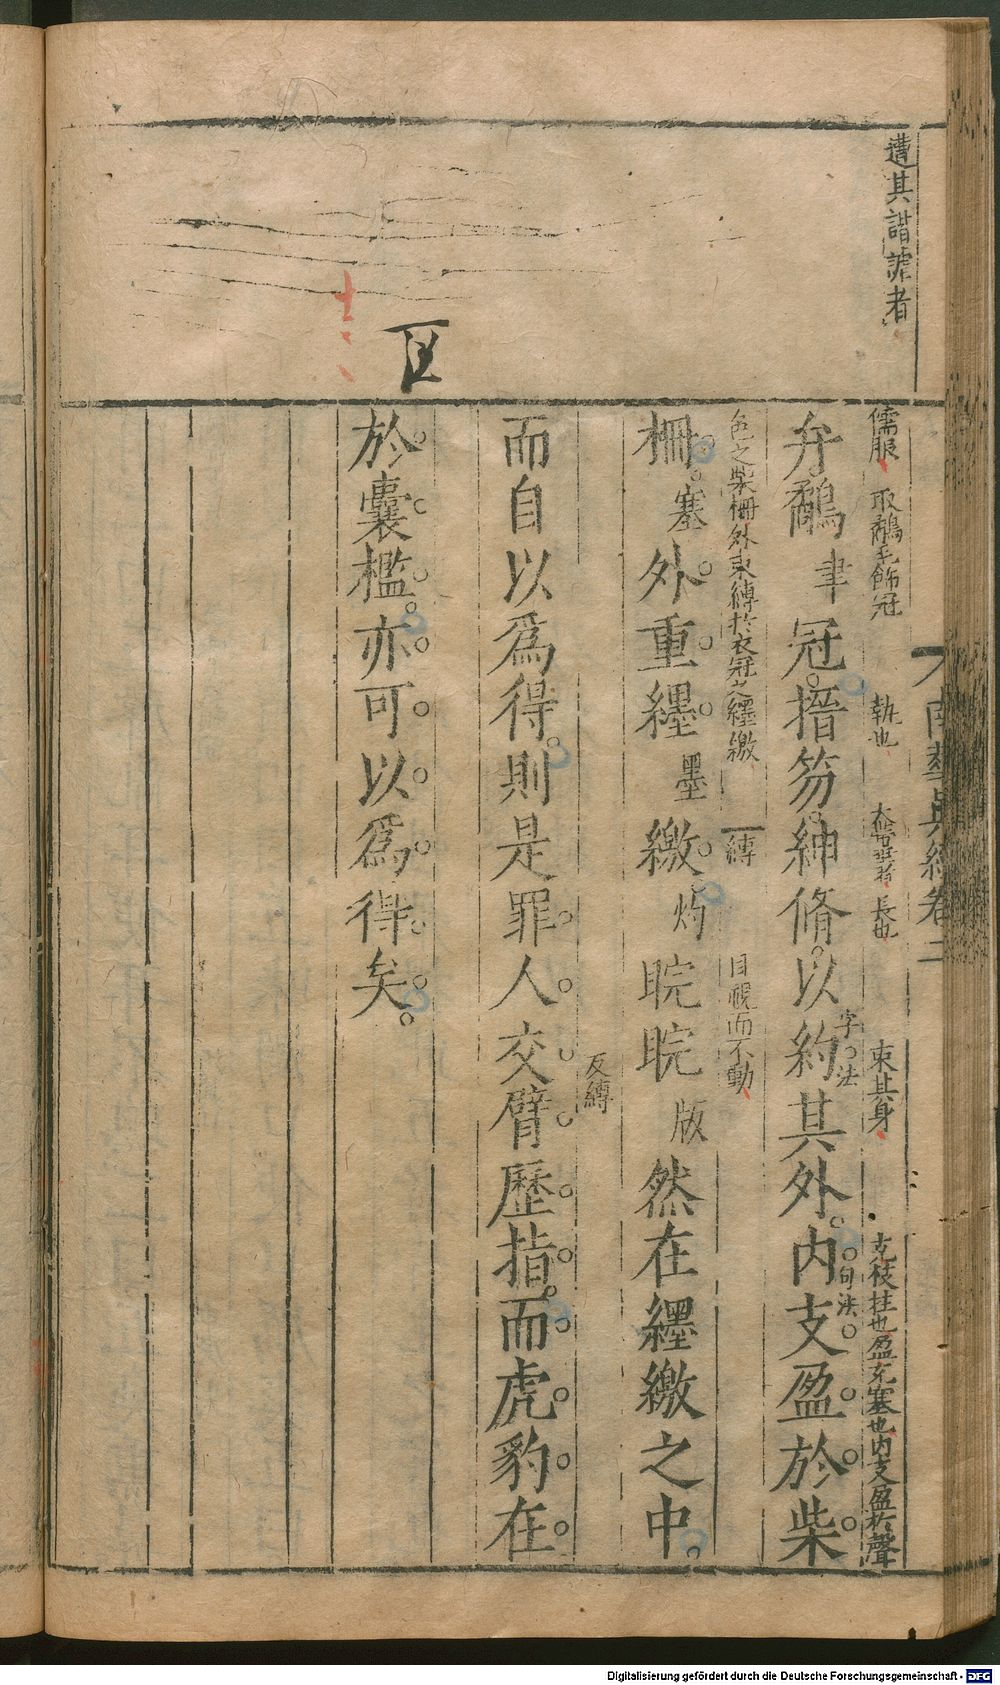 遭其譛謔者
南華真經卷二
儒服 取鷸毛飾冠 執也 大帶垂者 長也 束其身 支枝拄也盈充塞也內支盈於聲
弁鷸聿冠搢笏紳脩以約其外內支盈於柴
字法
句法
色之柴柵外束縛於衣冠之纆繳 縛 目視而不動
柵塞外重纆墨繳灼睆睆版然在纆繳之中
反縛
而自以為得則是罪人交臂歷指而虎豹在
於囊檻亦可以為得矣
Digitalisierung gefördert durch die Deutsche Forschungsgemeinschaft - DFG